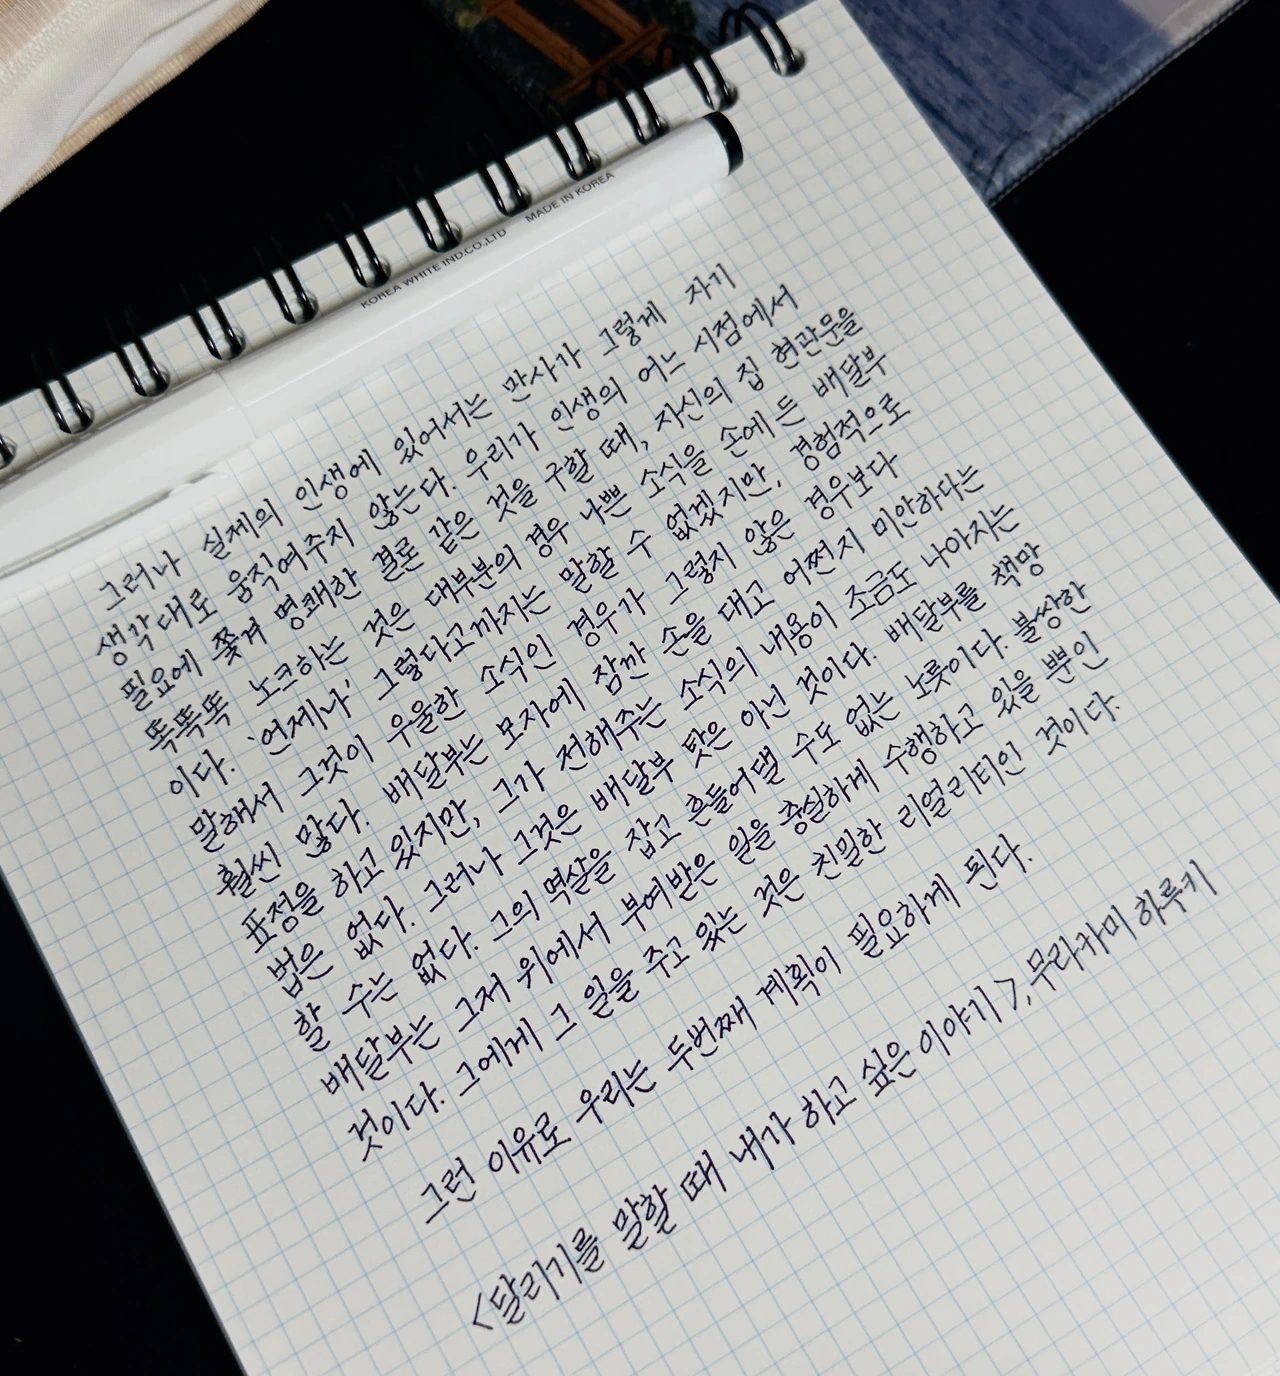 KOREA WHITE IND.CO.,LTD MADE IN KOREA
그러나 실제의 인생에 있어서는 만사가 그렇게 자기
생각대로 움직여주지 않는다. 우리가 인생의 어느 시점에서
필요에 쫓겨 명쾌한 결론 같은 것을 구할 때, 자신의 집 현관문을
똑똑똑 노크하는 것은 대부분의 경우 나쁜 소식을 손에 든 배달부
이다. '언제나' 그렇다고까지는 말할 수 없겠지만, 경험적으로
말해서 그것이 우울한 소식인 경우가 그렇지 않은 경우보다
훨씬 많다. 배달부는 모자에 잠깐 손을 대고 어쩐지 미안하다는
표정을 하고 있지만, 그가 전해주는 소식의 내용이 조금도 나아지는
법은 없다. 그러나 그것은 배달부 탓은 아닌 것이다. 배달부를 책망
할 수는 없다. 그의 멱살을 잡고 흔들어댈 수도 없는 노릇이다. 불쌍한
배달부는 그저 위에서 부여받은 일을 충실하게 수행하고 있을 뿐인
것이다. 그에게 그 일을 주고 있는 것은 친밀한 리얼리티인 것이다.
그런 이유로 우리는 두번째 계획이 필요하게 된다.
<달리기를 말할 때 내가 하고 싶은 이야기>, 무라카미 하루키